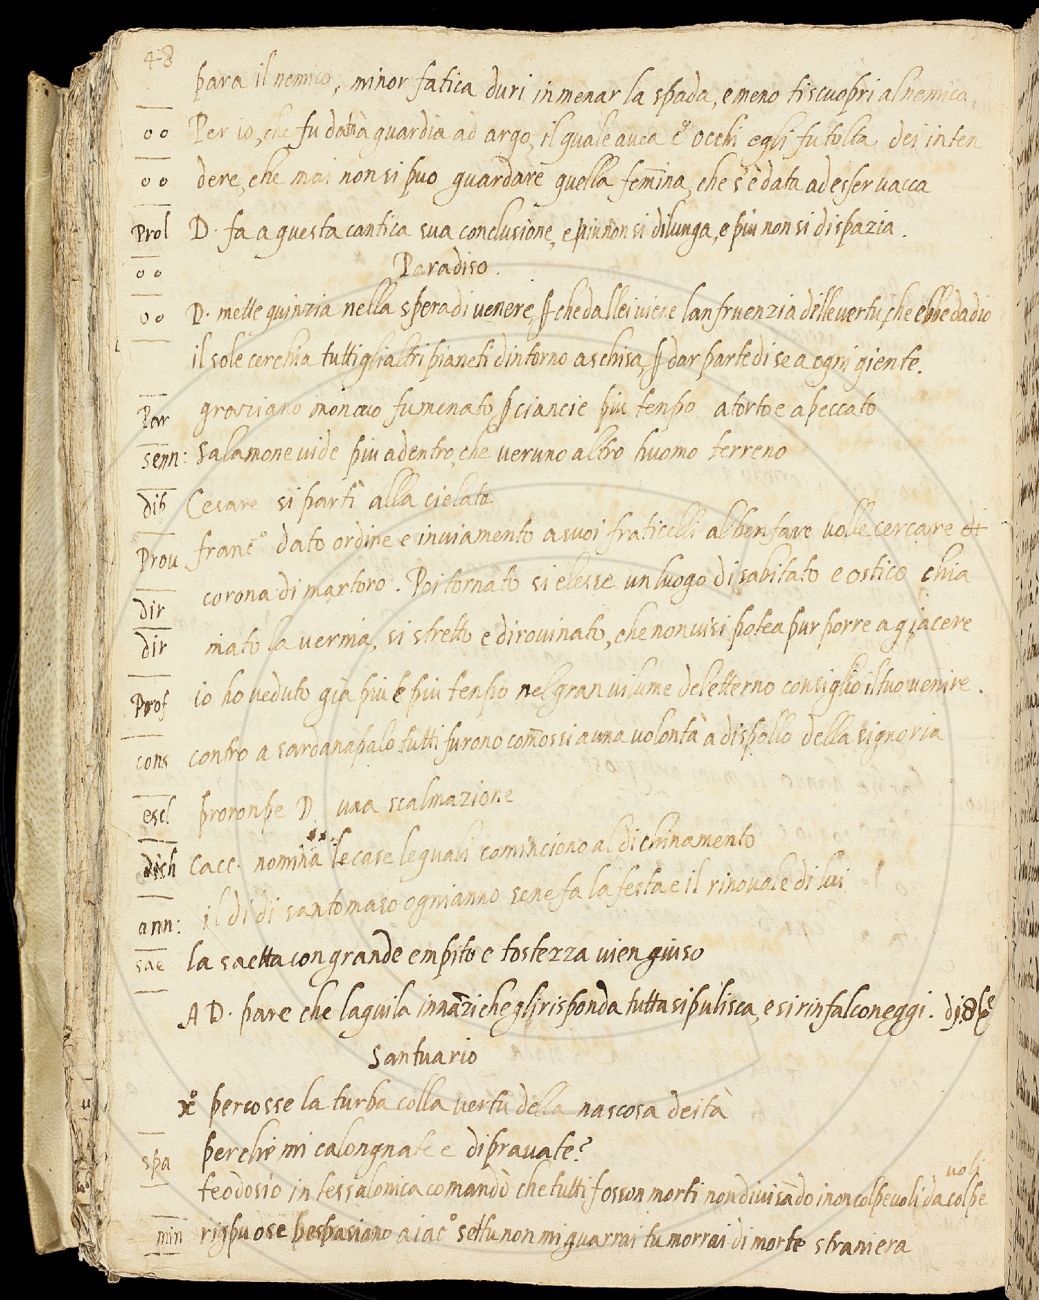 48
para il nemico, minor fatica duri in menar la spada, e meno ti scuopri al nemico
oo Per io, che fu data à guardia ad argo, il quale avea c° occhi egli fu tolta dei inten
oo dere, che mai non si puo guardare quella femina, che s'è data ad esser vacca
Prol D. fa a questa cantica sua conclusione, e piu non si dilunga, e piu non si dispazia.
oo Paradiso.
oo D. mette quinzia nella spera di venere, ꝑ che da llei viene lanfruenzia delle vertu, che ebbe da dio
il sole cerchia tutti gli altri pianeti dintorno a schisa, ꝑ dar parte di se a ogni giente.
Par graziano monaco fu menato ꝑ ciancie piu tenpo a torto e a peccato
senn: Salamone vide piu adentro, che veruno altro huomo terreno
dip Cesare si partì alla cielata
Prou franc° dato ordine e inviamento a suoi fraticelli al ben fare volle cercare di
corona di martoro. Poi tornato si elesse un luogo disabitato e ostico chia
dir
dir mato la vernia, si stretto e dirovinato, che non vi si potea pur porre a giacere
Prof io ho veduto già piu e piu tenpo nel gran vilume del etterno consiglio il tuo venire.
cons contro a sardanapalo tutti furono comossi a una volontà à dispetto della signoria
escl proronpe D. una scalmazione
dich Cacc. nomina le case le quali cominciono al dichinamento
ann: il di di san tomaso ogni anno se ne fa la festa e il rinovale di lui
sae la saetta con grande empito e fostezza vien giuso
A D. pare che laguila innāzi che gli risponda tutta si pulisca, e si rinfalconeggi.
Santuario
x° percosse la turba colla vertu della nascosa deità
spa perche mi calongnate e dipravate?
voli
teodosio in tessalonica comandò che tutti fosson morti non divisādo i non colpevoli da colpe
min rispuose bespasiano a iac° se ttu non mi guarrai tu morrai di morte straniera